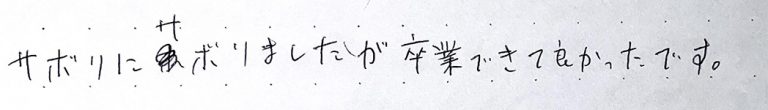 サボリにサボリましたが卒業できて良かったです。